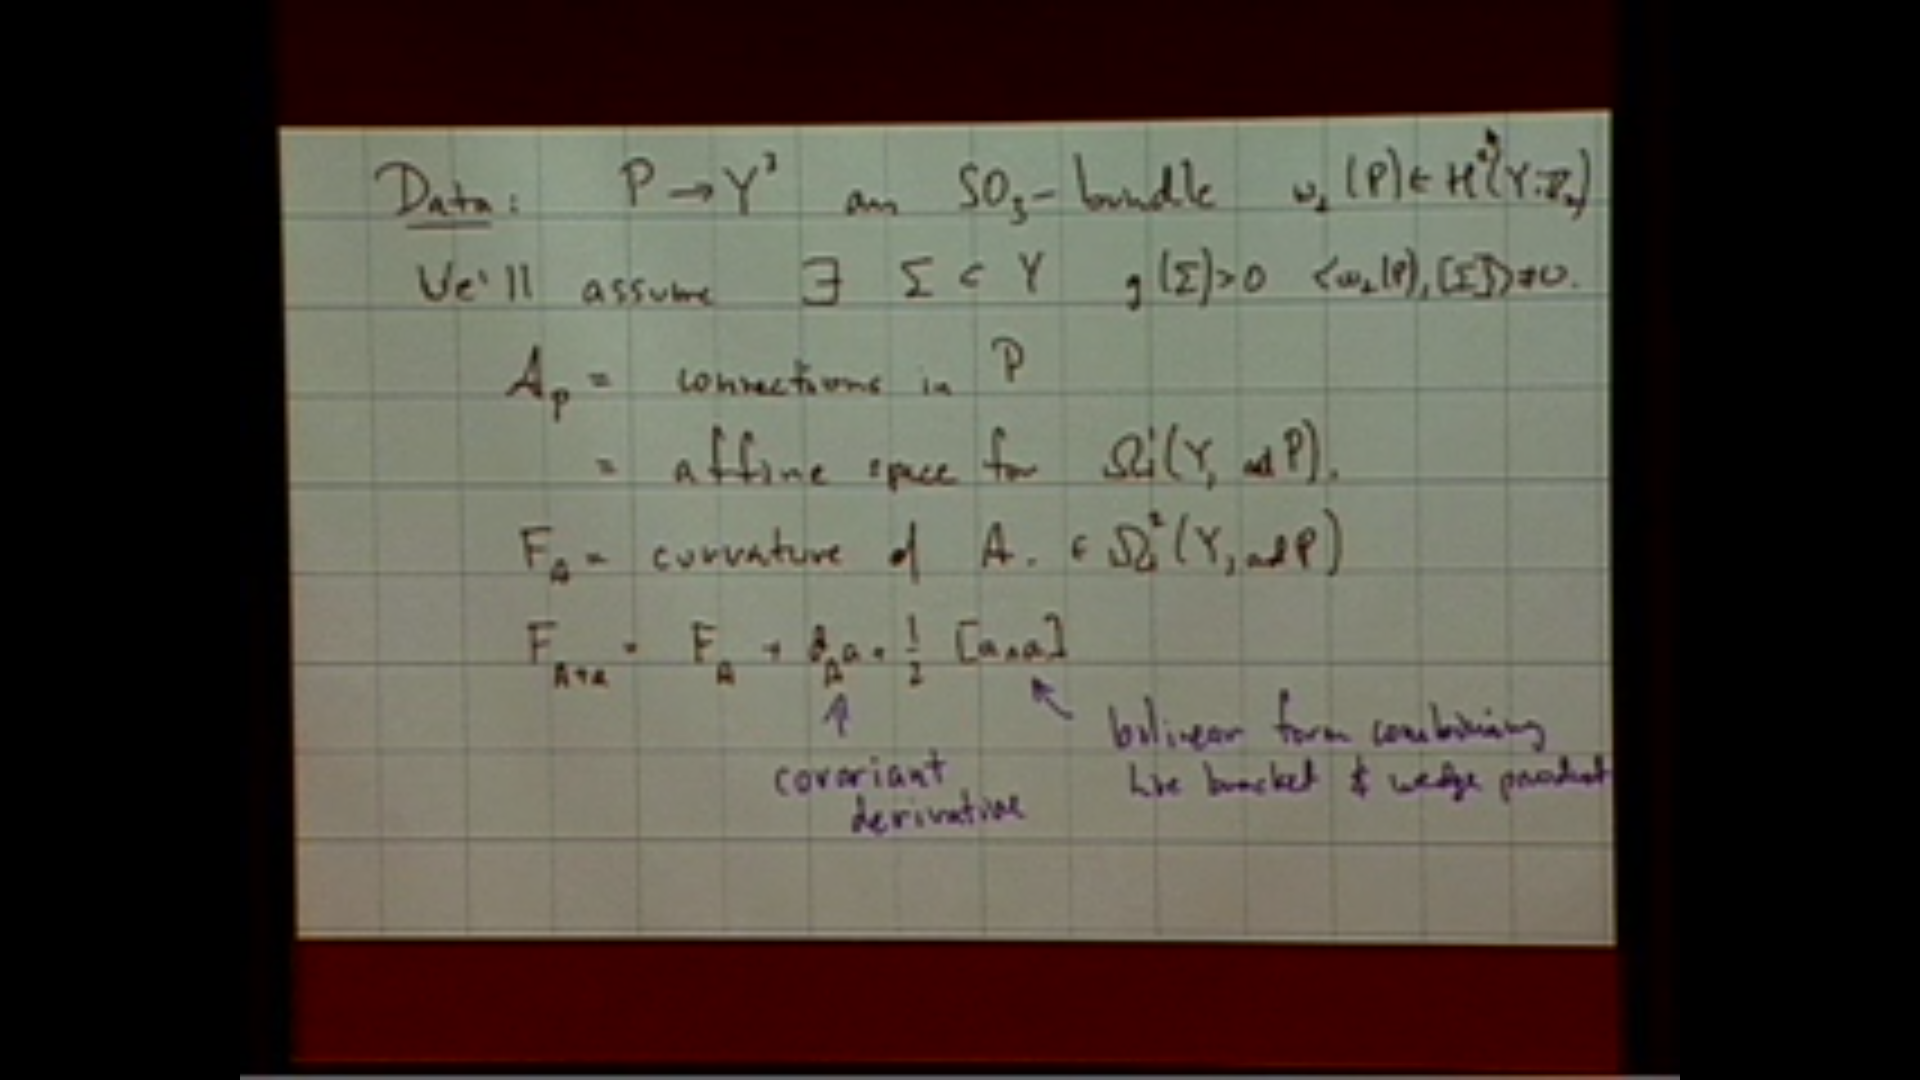 Data: P → Y³ an SO₃-bundle w₂(P) ∈ H²(Y; Z₂)
We'll assume ∃ Σ ⊂ Y g(Σ)>0 <w₂(P), [Σ]> ≠ 0.
A_P = connections in P
= affine space for Ω¹(Y, ad P).
F_A = curvature of A. ∈ Ω²(Y, ad P)
F_{A+a} = F_A + d_A a + 1/2 [a∧a]
↑ covariant derivative
↖ bilinear form combining
Lie bracket & wedge product